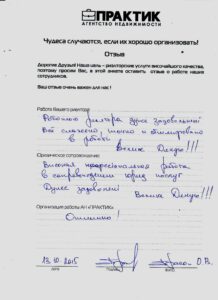 ПРАКТИК
АГЕНТСТВО НЕДВИЖИМОСТИ
Чудеса случаются, если их хорошо организовать!
Отзыв
Дорогие Друзья! Наша цель – риэлторские услуги высочайшего качества,
поэтому просим Вас, в этой анкете оставить отзыв о работе наших
сотрудников.
Ваш отзыв очень важен для нас!
Работа Вашего риэлтора
Роботою рієлтора дуже задоволені
Всі злагоджено, точно и
в роботі.
Велике Дякую!!!
Юридическое сопровождение
Висока професіональна робота
в сопроводженні юрид послуг.
Дуже задоволені Велике Дякую!!!
Организация работы АН «ПРАКТИК»
Отлично!
13.10.2015
О.В.
дата
подпись
ФИО